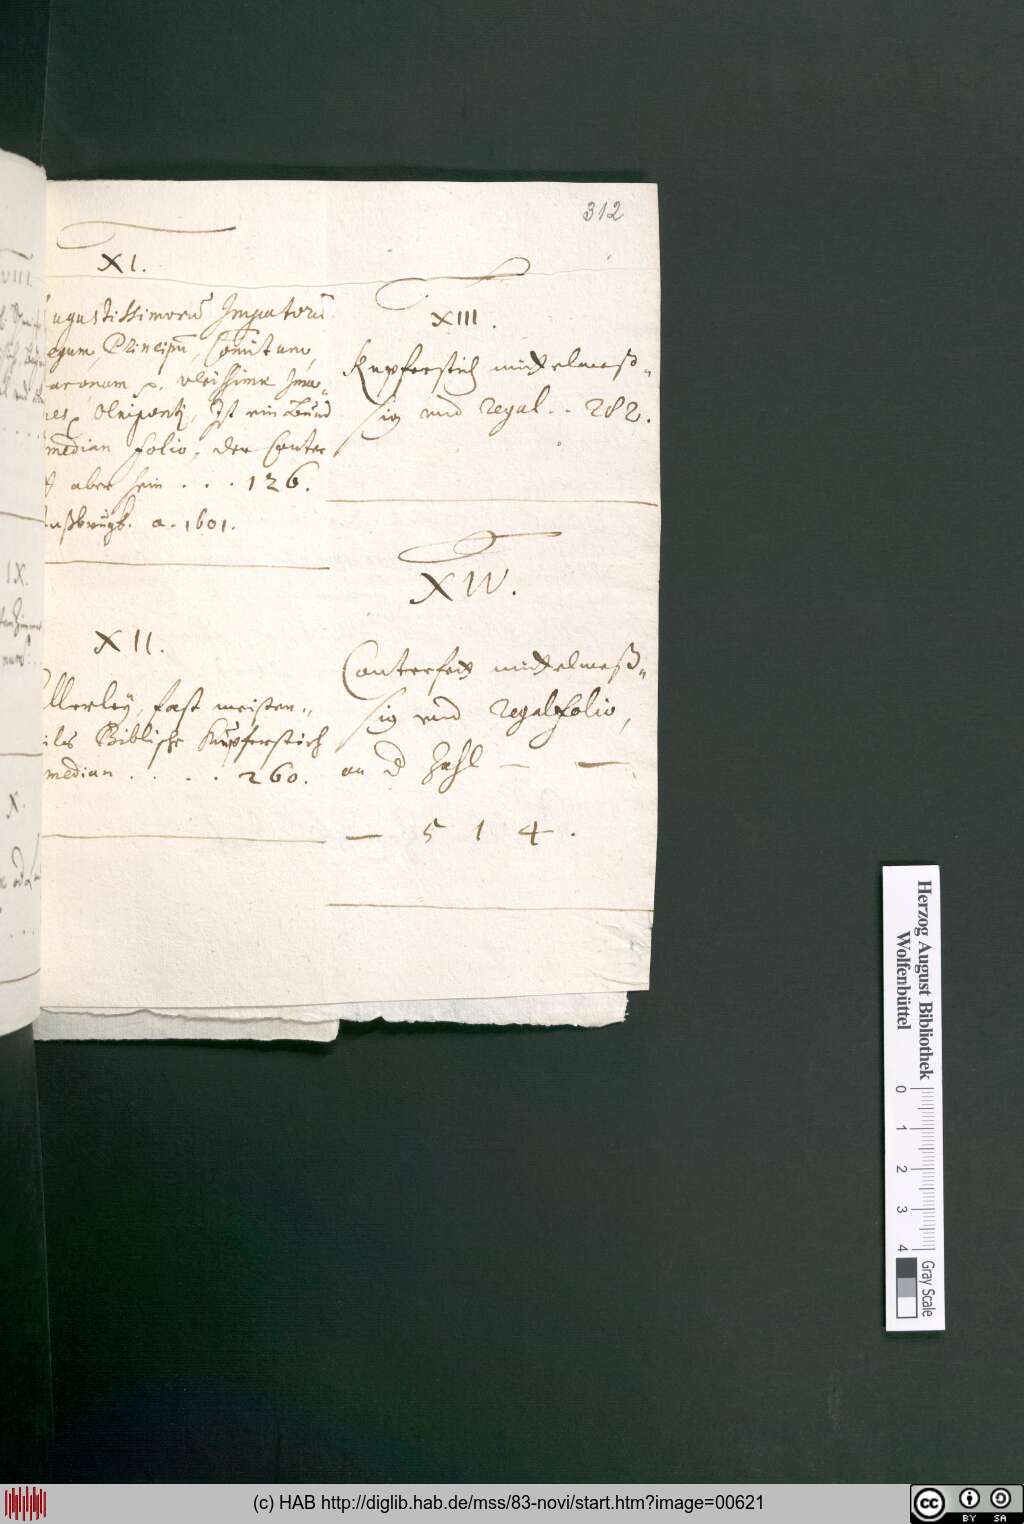 312
XI.
ugustissimorū Imperatorū
egum, Principū, Comitum,
aronum p. verissimæ Ima-
nes, Oeniponti, Ist ein Bund
median folio, der Conter
aber sein . . . 126.
a. 1601.
XII.
llerley, fast meisten-
ils Biblische Kupferstich
median . . . . 260.
XIII.
Kupferstich mittelmeß-
sig vnd regal . . 282.
XIV.
Conterfeit mittelmeß-
sig vnd regal folio,
an d Zahl — —
— 5 1 4 .
VIII.
IX.
X.
Herzog August Bibliothek
Wolfenbüttel
0 1 2 3 4
Gray Scale
(c) HAB http://diglib.hab.de/mss/83-novi/start.htm?image=00621
cc BY SA